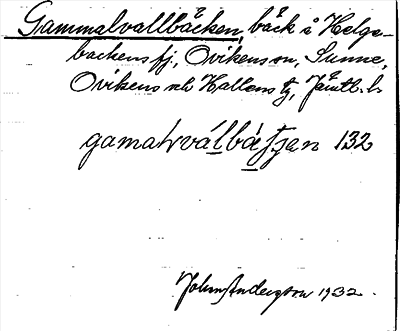 Gammalvallbäcken, bäck å Helge-
backens fj, Ovikens sn, Sunne,
Ovikens och Hallens tg, Jämtl. l.
gamalválbätjen 132
John Andersson 1932.